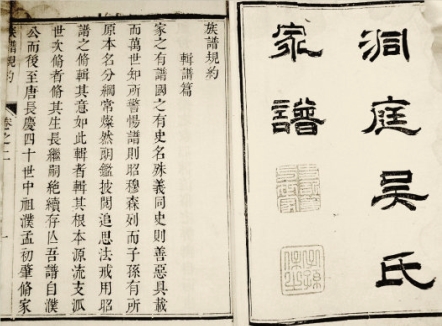 洞庭吴氏
家譜
族譜規約
輯譜篇
家之有譜國之有史名殊義同史則善惡具載
而萬世知所警惕譜則昭穆森列而子孫有所
原本名分綱常燦然明鑑披閱追思法戒用昭
譜之脩輯其意如此輯者輯其根本源流支派
世次脩者脩其生長繼嗣絶續存亾吾譜自濮
公而後至唐長慶四十世中祖濮孟初肇脩家
族譜規約
卷之二
一